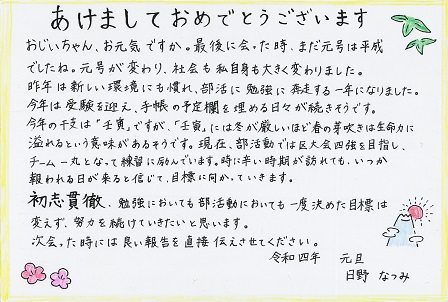 あけましておめでとうございます
おじいちゃん、お元気ですか。最後に会った時、まだ元号は平成
でしたね。元号が変わり、社会も私自身も大きく変わりました。
昨年は新しい環境にも慣れ、部活に勉強に奔走する一年になりました。
今年は受験を迎え、手帳の予定欄を埋める日々が続きそうです。
今年の干支は「壬寅」ですが、「壬寅」には冬が厳しいほど春の芽吹きは生命力に
溢れるという意味があるそうです。現在、部活動では区大会四強を目指し、
チーム一丸となって練習に励んでいます。時に辛い時期が訪れても、いつか
報われる日が来ると信じて、目標に向かっていきます。
初志貫徹、勉強においても部活動においても一度決めた目標は
変えず、努力を続けていきたいと思います。
次会った時には良い報告を直接伝えさせてください。
令和四年 元旦
日野 なつみ